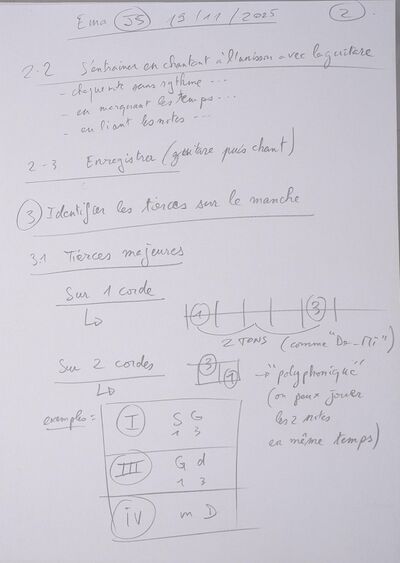 Ema JS 19/11/2025 2.
2-2 S'entraîner en chantant à l'unisson avec la guitare
- chaque note sans rythme...
- en marquant les temps...
- en liant les notes...
2-3 Enregistrer (guitare puis chant)
3 Identifier les tierces sur le manche
3.1 Tierces majeures
Sur 1 corde
1 3
2 TONS (comme "Do-Mi")
Sur 2 cordes
3 1
→ "polyphonique"
(on peux jouer
les 2 notes
en même temps)
exemples =
I S G
1 3
III G d
1 3
IV m D